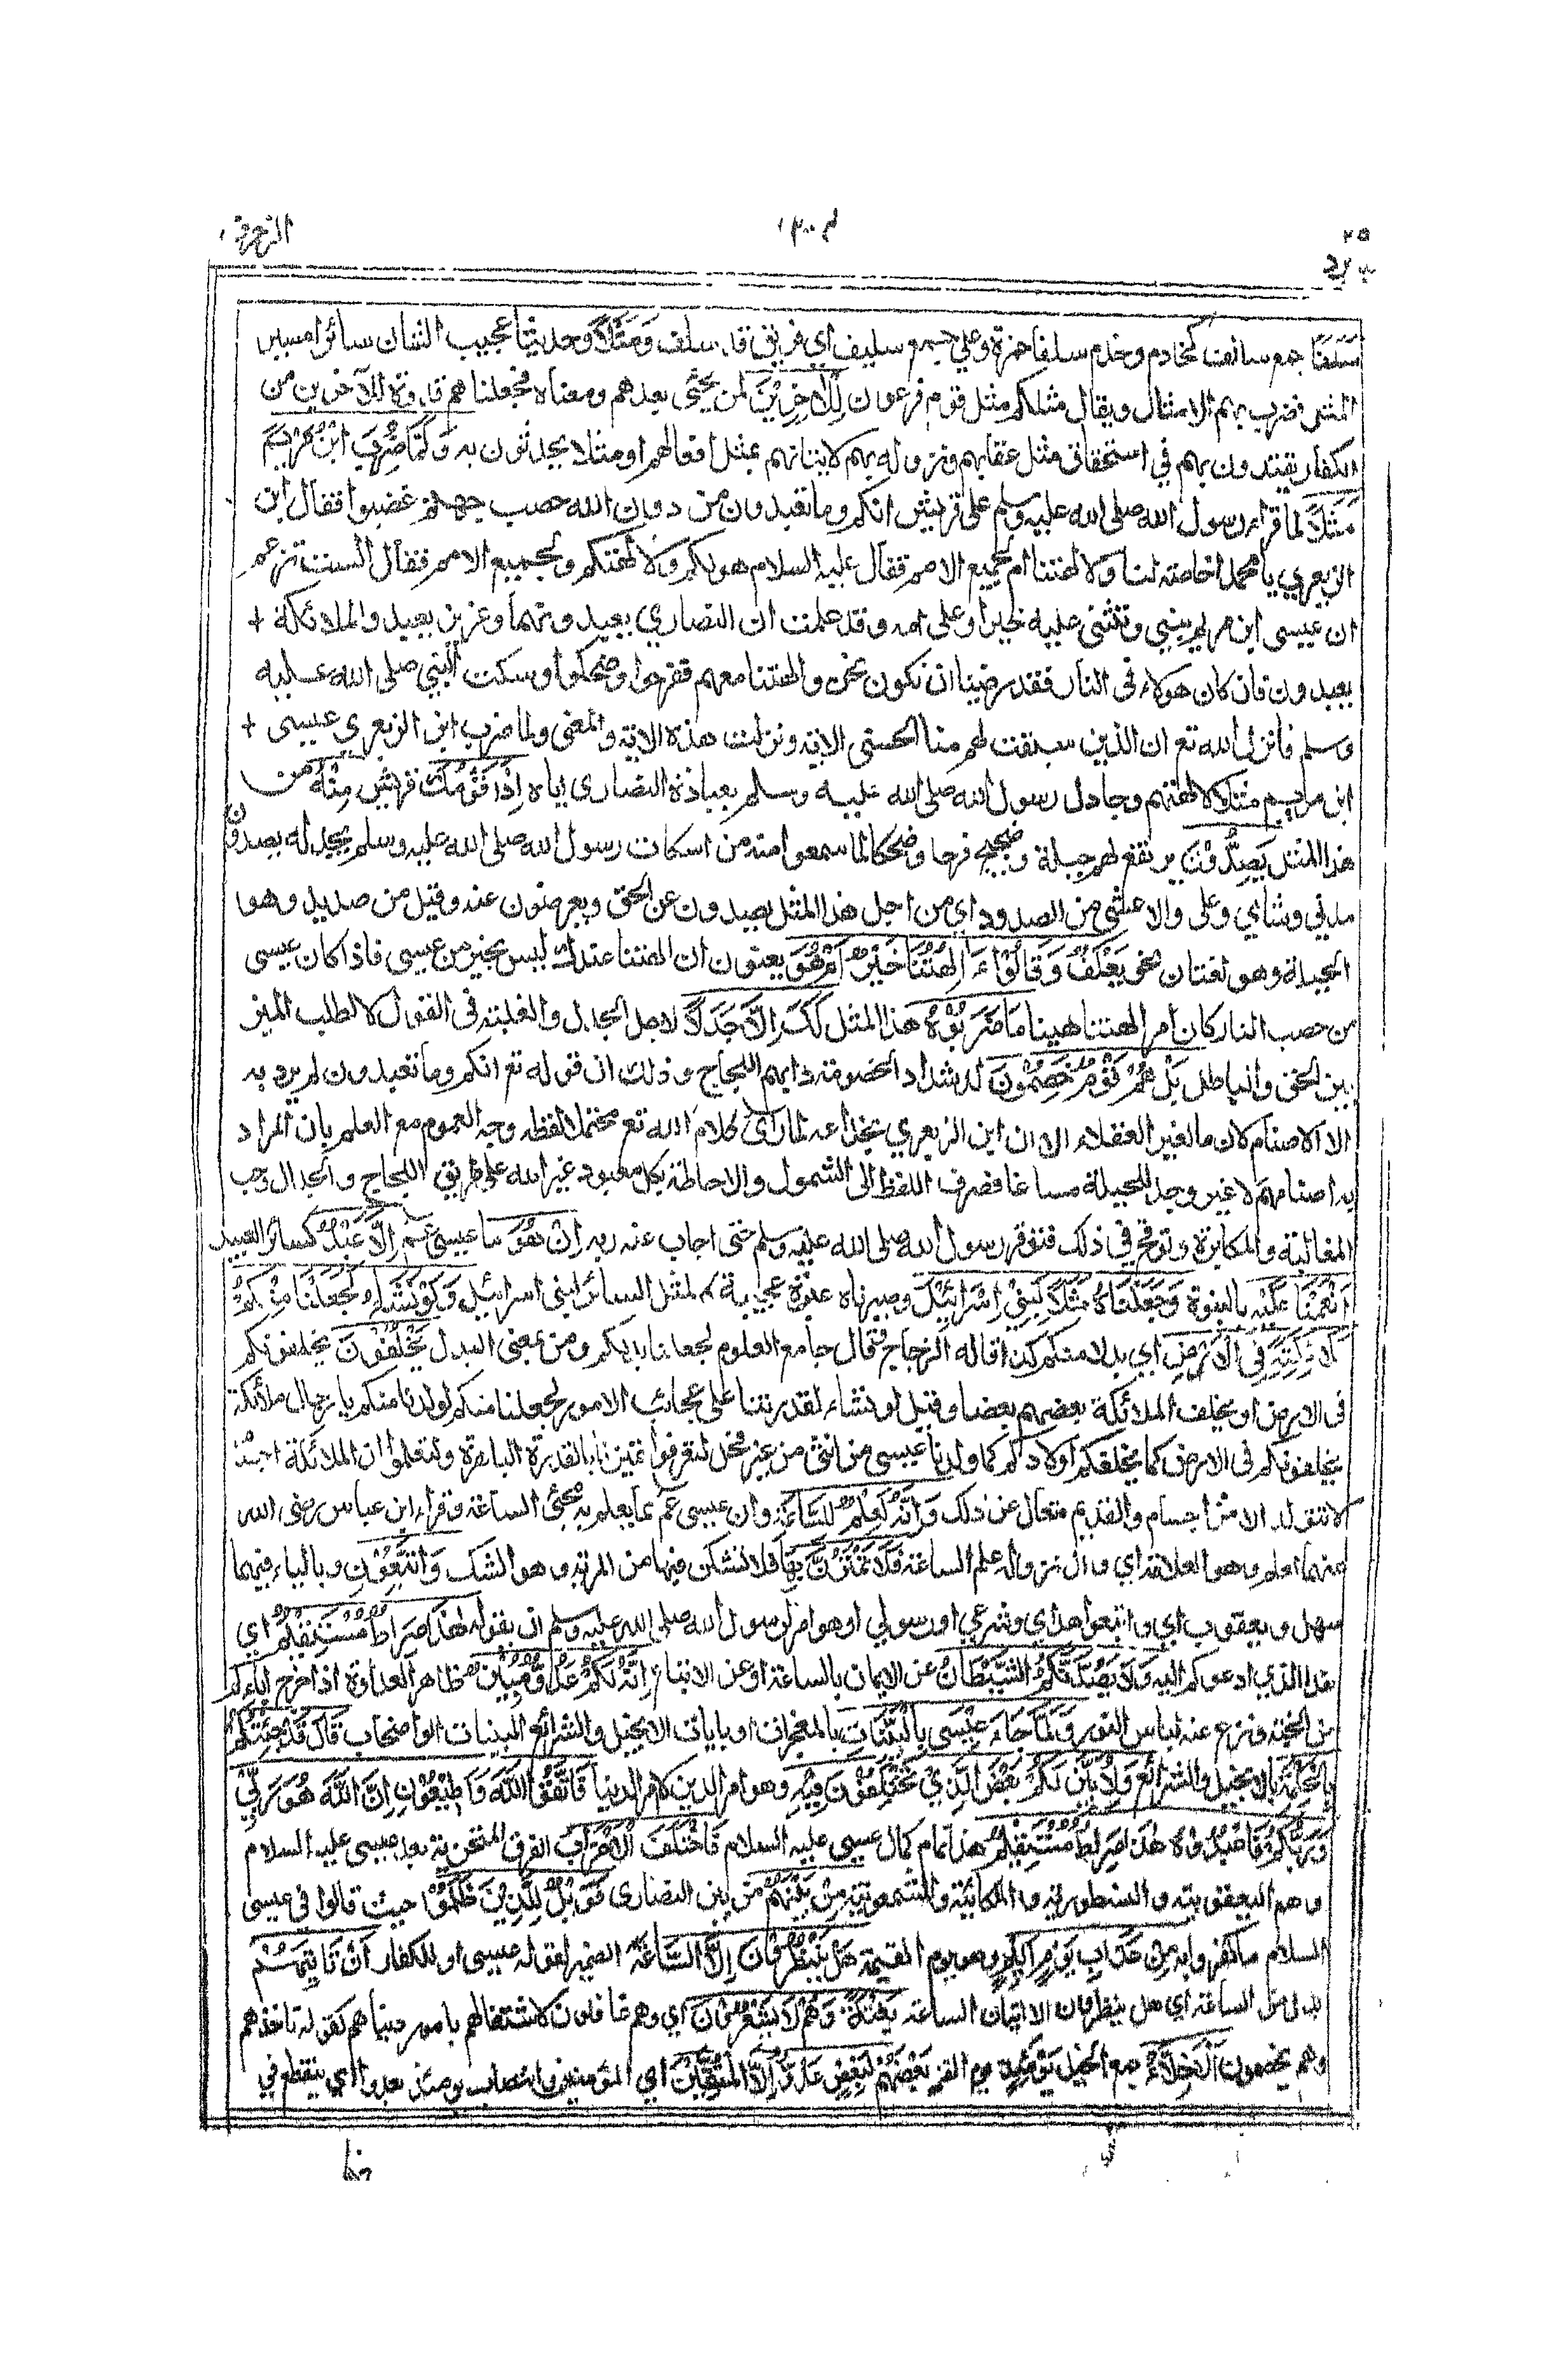 الزخرف ١٣٠٤ ٢٥
سَلَفًا جمع سالف كخادم وخدم سلفا حمزة وعلي جمع سليف اي فريق قد سلف وَمَثَلًا وحديثا عجيب الشان سائرا مسير
المثل فضرب بهم الامثال ويقال مثلكم مثل قوم فرعون لِلْاٰخِرِيْنَ لمن يجئ بعدهم ومعناه فجعلناهم قدوة للآخرين من
الكفار يقتدون بهم في استحقاق مثل عقابهم ونزوله بهم لاتيانهم بمثل افعالهم او مثلا يحدثون به وَلَمَّا ضُرِبَ ابْنُ مَرْيَمَ
مَثَلًا لما قراء رسول الله صلى الله عليه وسلم على قريش انكم وما تعبدون من دون الله حصب جهنم غضبوا فقال ابن
الزبعري يا محمد اخاصة لنا ولالهتنا ام لجميع الامم فقال عليه السلام هو لكم ولالهتكم ولجميع الامم فقال الست تزعم
ان عيسى ابن مريم نبي وتثني عليه خيرا وعلى امه وقد علمت ان النصارى يعبدونهما وعزير يعبد والملائكة +
يعبدون فان كان هولاء فى النار فقد رضينا ان نكون نحن والهتنا معهم ففرحوا وضحكوا وسكت النبي صلى الله عليه
وسلم فانزل الله تع ان الذين سبقت لهم منا الحسنى الاية ونزلت هذه الاية والمعنى ولما ضرب ابن الزبعرى عيسى +
ابن مريم مثلا لالهتهم وجادل رسول الله صلى الله عليه وسلم بعبادة النصارى اياه اِذَا قَوْمُكَ قريش مِنْهُ من
هذا المثل يَصِدُّوْنَ يرتفع لهم جلبة وضجيج فرحا وضحكا لما سمعوا منه من اسكات رسول الله صلى الله عليه وسلم بجدله يصدون
مدني وشامي وعلى والاعشى من الصدود اي من اجل هذا المثل يصدون عن الحق ويعرضون عنه وقيل من صديد وهو
الجلبة وهو لغتان نحو يَعْكُفُ وَقَالُوْا ءَاٰلِهَتُنَا خَيْرٌ اَمْ هُوَ يعنون ان الهتنا عندك ليس بخير من عيسى فاذا كان عيسى
من حصب النار كان امر الهتنا هينا مَا ضَرَبُوْهُ هذا المثل لَكَ اِلَّا جَدَلًا لاجل الجدل والغلبة فى القول لا لطلب الميز
بين الحق والباطل بَلْ هُمْ قَوْمٌ خَصِمُوْنَ لد شداد الخصومة دابهم اللجاج وذلك ان قوله تع انكم وما تعبدون لم يرد به
الا الاصنام لان ما لغير العقلاء الا ان ابن الزبعري بخداعه لما رأى كلام الله تع محتملا لفظه وجه العموم مع العلم بان المراد
به اصنامهم لا غير وجد للحيلة مساغا فصرف اللفظ الى الشمول والاحاطة بكل معبود غير الله على طريق اللجاج والجدال وحب
المغالبة والمكابرة وتوقح في ذلك فتوقر رسول الله صلى الله عليه وسلم حتى اجاب عنه ربه اِنْ هُوَ ما عيسى عم اِلَّا عَبْدٌ كسائر العبيد
اَنْعَمْنَا عَلَيْهِ بالنبوة وَجَعَلْنَاهُ مَثَلًا لِبَنِيْ اِسْرَائِيْلَ وصيرناه عبرة عجيبة كالمثل السائر لبنى اسرائيل وَلَوْ نَشَاءُ لَجَعَلْنَا مِنْكُمْ
مَلَائِكَةً فِى الْاَرْضِ اي بدلا منكم كذا قاله الزجاج فقال جامع العلوم لجعلنا بدلكم ومن بمعنى البدل يَخْلُفُوْنَ يخلفونكم
فى الارض او يخلف الملائكة بعضهم بعضا وقيل لو نشاء لقدرتنا على عجائب الامور لجعلنا منكم لولدنا منكم يا رجال ملائكة
يخلفونكم فى الارض كما يخلفكم اولادكم كما ولدنا عيسى من انثى من غير فحل لتعرفوا تميزنا بالقدرة الباهرة ولتعلموا ان الملائكة اجسام
لا تتولد الا من اجسام والقديم متعال عن ذلك وَاِنَّهُ لَعِلْمٌ لِلسَّاعَةِ وان عيسى عم مما يعلم به مجئ الساعة وقراء ابن عباس رضى الله
عنهما لعلم وهو العلامة اي وان نزوله علم الساعة فَلَا تَمْتَرُنَّ بِهَا فلا تشكن فيها من المرية وهو الشك وَاتَّبِعُوْنِ وبالياء فيهما
سهل ويعقوب اي واتبعوا هداي وشرعي او رسولي او هو امر لرسول الله صلى الله عليه وسلم ان يقوله هٰذَا صِرَاطٌ مُسْتَقِيْمٌ اي
هذا الذي ادعوكم اليه وَلَا يَصُدَّنَّكُمُ الشَّيْطَانُ عن الايمان بالساعة او عن الاتباع اِنَّهُ لَكُمْ عَدُوٌّ مُبِيْنٌ ظاهر العداوة اذ اخرج اباكم
من الجنة ونزع عنه لباس النور وَلَمَّا جَاءَ عِيْسَى بِالْبَيِّنَاتِ بالمعجزات او بايات الانجيل والشرائع البينات الواضحات قَالَ قَدْ جِئْتُكُمْ
بِالْحِكْمَةِ بالانجيل والشرائع وَلِاُبَيِّنَ لَكُمْ بَعْضَ الَّذِيْ تَخْتَلِفُوْنَ فِيْهِ وهو امر الدين لا امر الدنيا فَاتَّقُوا اللّٰهَ وَاَطِيْعُوْنِ اِنَّ اللّٰهَ هُوَ رَبِّيْ
وَرَبُّكُمْ فَاعْبُدُوْهُ هٰذَا صِرَاطٌ مُسْتَقِيْمٌ هذا تمام كلام عيسى عليه السلام فَاخْتَلَفَ الْاَحْزَابُ الفرق المتحزبة بعد عيسى عليه السلام
وهم اليعقوبية والنسطورية والملكائية والشمعونية مِنْ بَيْنِهِمْ من بين النصارى فَوَيْلٌ لِلَّذِيْنَ ظَلَمُوْا حيث قالوا فى عيسى
السلام ما كفروا به مِنْ عَذَابِ يَوْمٍ اَلِيْمٍ وهو يوم القيمة هَلْ يَنْظُرُوْنَ اِلَّا السَّاعَةَ الضمير لقوله عيسى او للكفار اَنْ تَاْتِيَهُمْ
بدل من الساعة اي هل ينظرون الا اتيان الساعة بَغْتَةً وَهُمْ لَا يَشْعُرُوْنَ اي وهم غافلون لاشتغالهم بامور دنياهم كقوله تاخذهم
وهم يخصمون اَلْاَخِلَّاءُ جمع الخليل يَوْمَئِذٍ يوم القيمة بَعْضُهُمْ لِبَعْضٍ عَدُوٌّ اِلَّا الْمُتَّقِيْنَ اي المؤمنين وانتصاب يومئذ بعدو اي ينقطع في